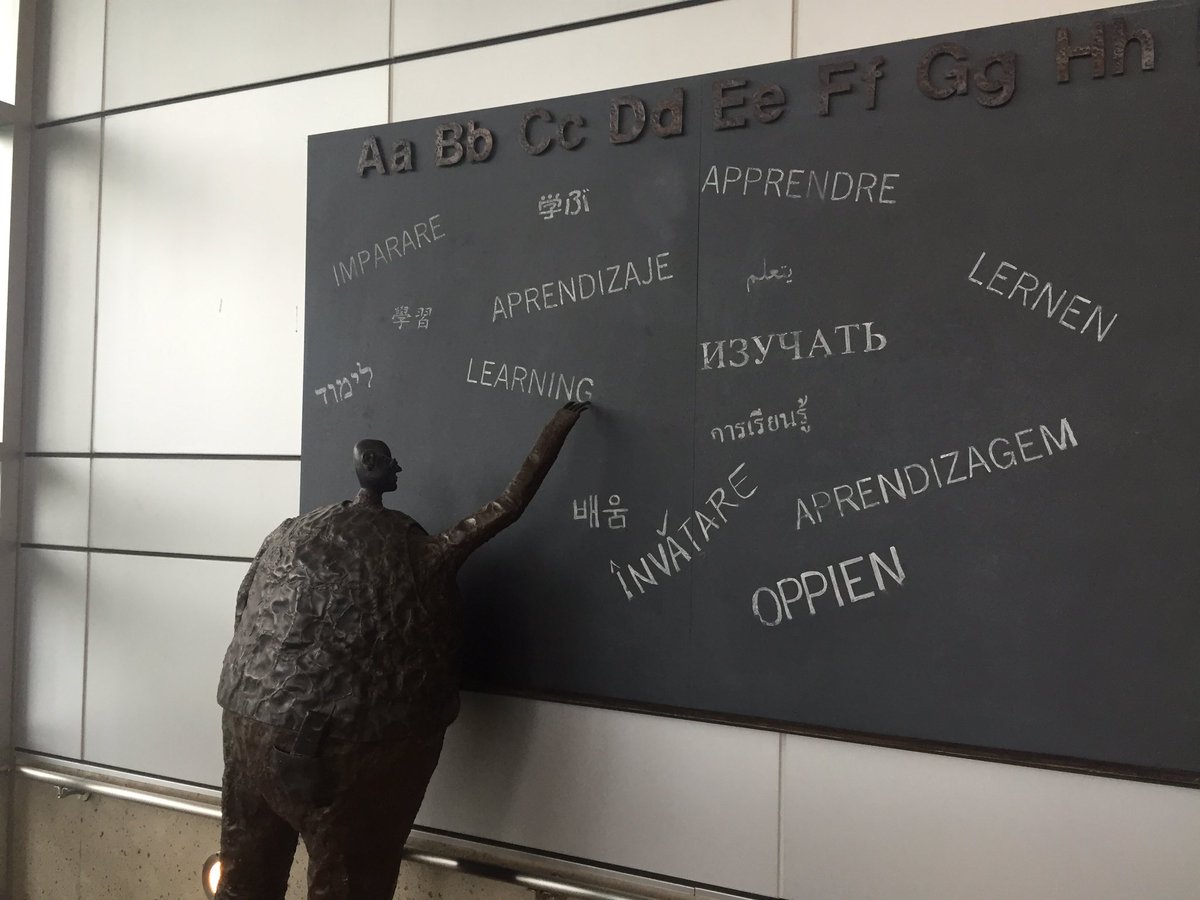 Aa Bb Cc Dd Ee Ff Gg Hh
APPRENDRE
学ぶ
IMPARARE
APRENDIZAJE
يتعلم
LERNEN
學習
ИЗУЧАТЬ
LEARNING
לימוד
การเรียนรู้
APRENDIZAGEM
배움
ÎNVĂTARE
OPPIEN